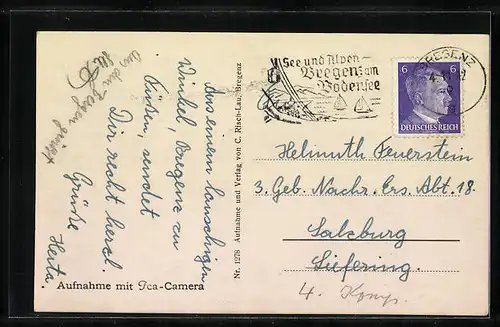 See und Alpen-
Bregenz am
Bodensee
BREGENZ
6 6
DEUTSCHES REICH
Aus einem lauschigen
Winkel, Bregenz zu
Füßen, sendet
Dir recht herzl.
Grüße
Herta.
Helmuth Feuerstein
3. Geb. Nachr. Ers. Abt. 18.
Salzburg
Siefering.
4. Komp.
Nr. 1278 Aufnahme und Verlag von C. Risch-Lau, Bregenz
Aufnahme mit Ica-Camera